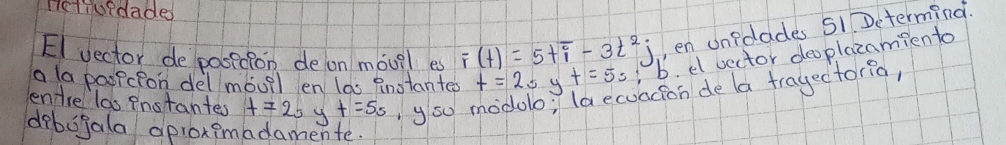 Actividades
El vector de posición de un móvil es r̄(t) = 5t ī - 3t² j̄, en unidades SI. Determina.
a la posición del móvil en los instantes t = 2s y t = 5s; b. el vector desplazamiento
entre los instantes t = 2s y t = 5s, y su módulo; la ecuación de la trayectoria,
dibújala aproximadamente.